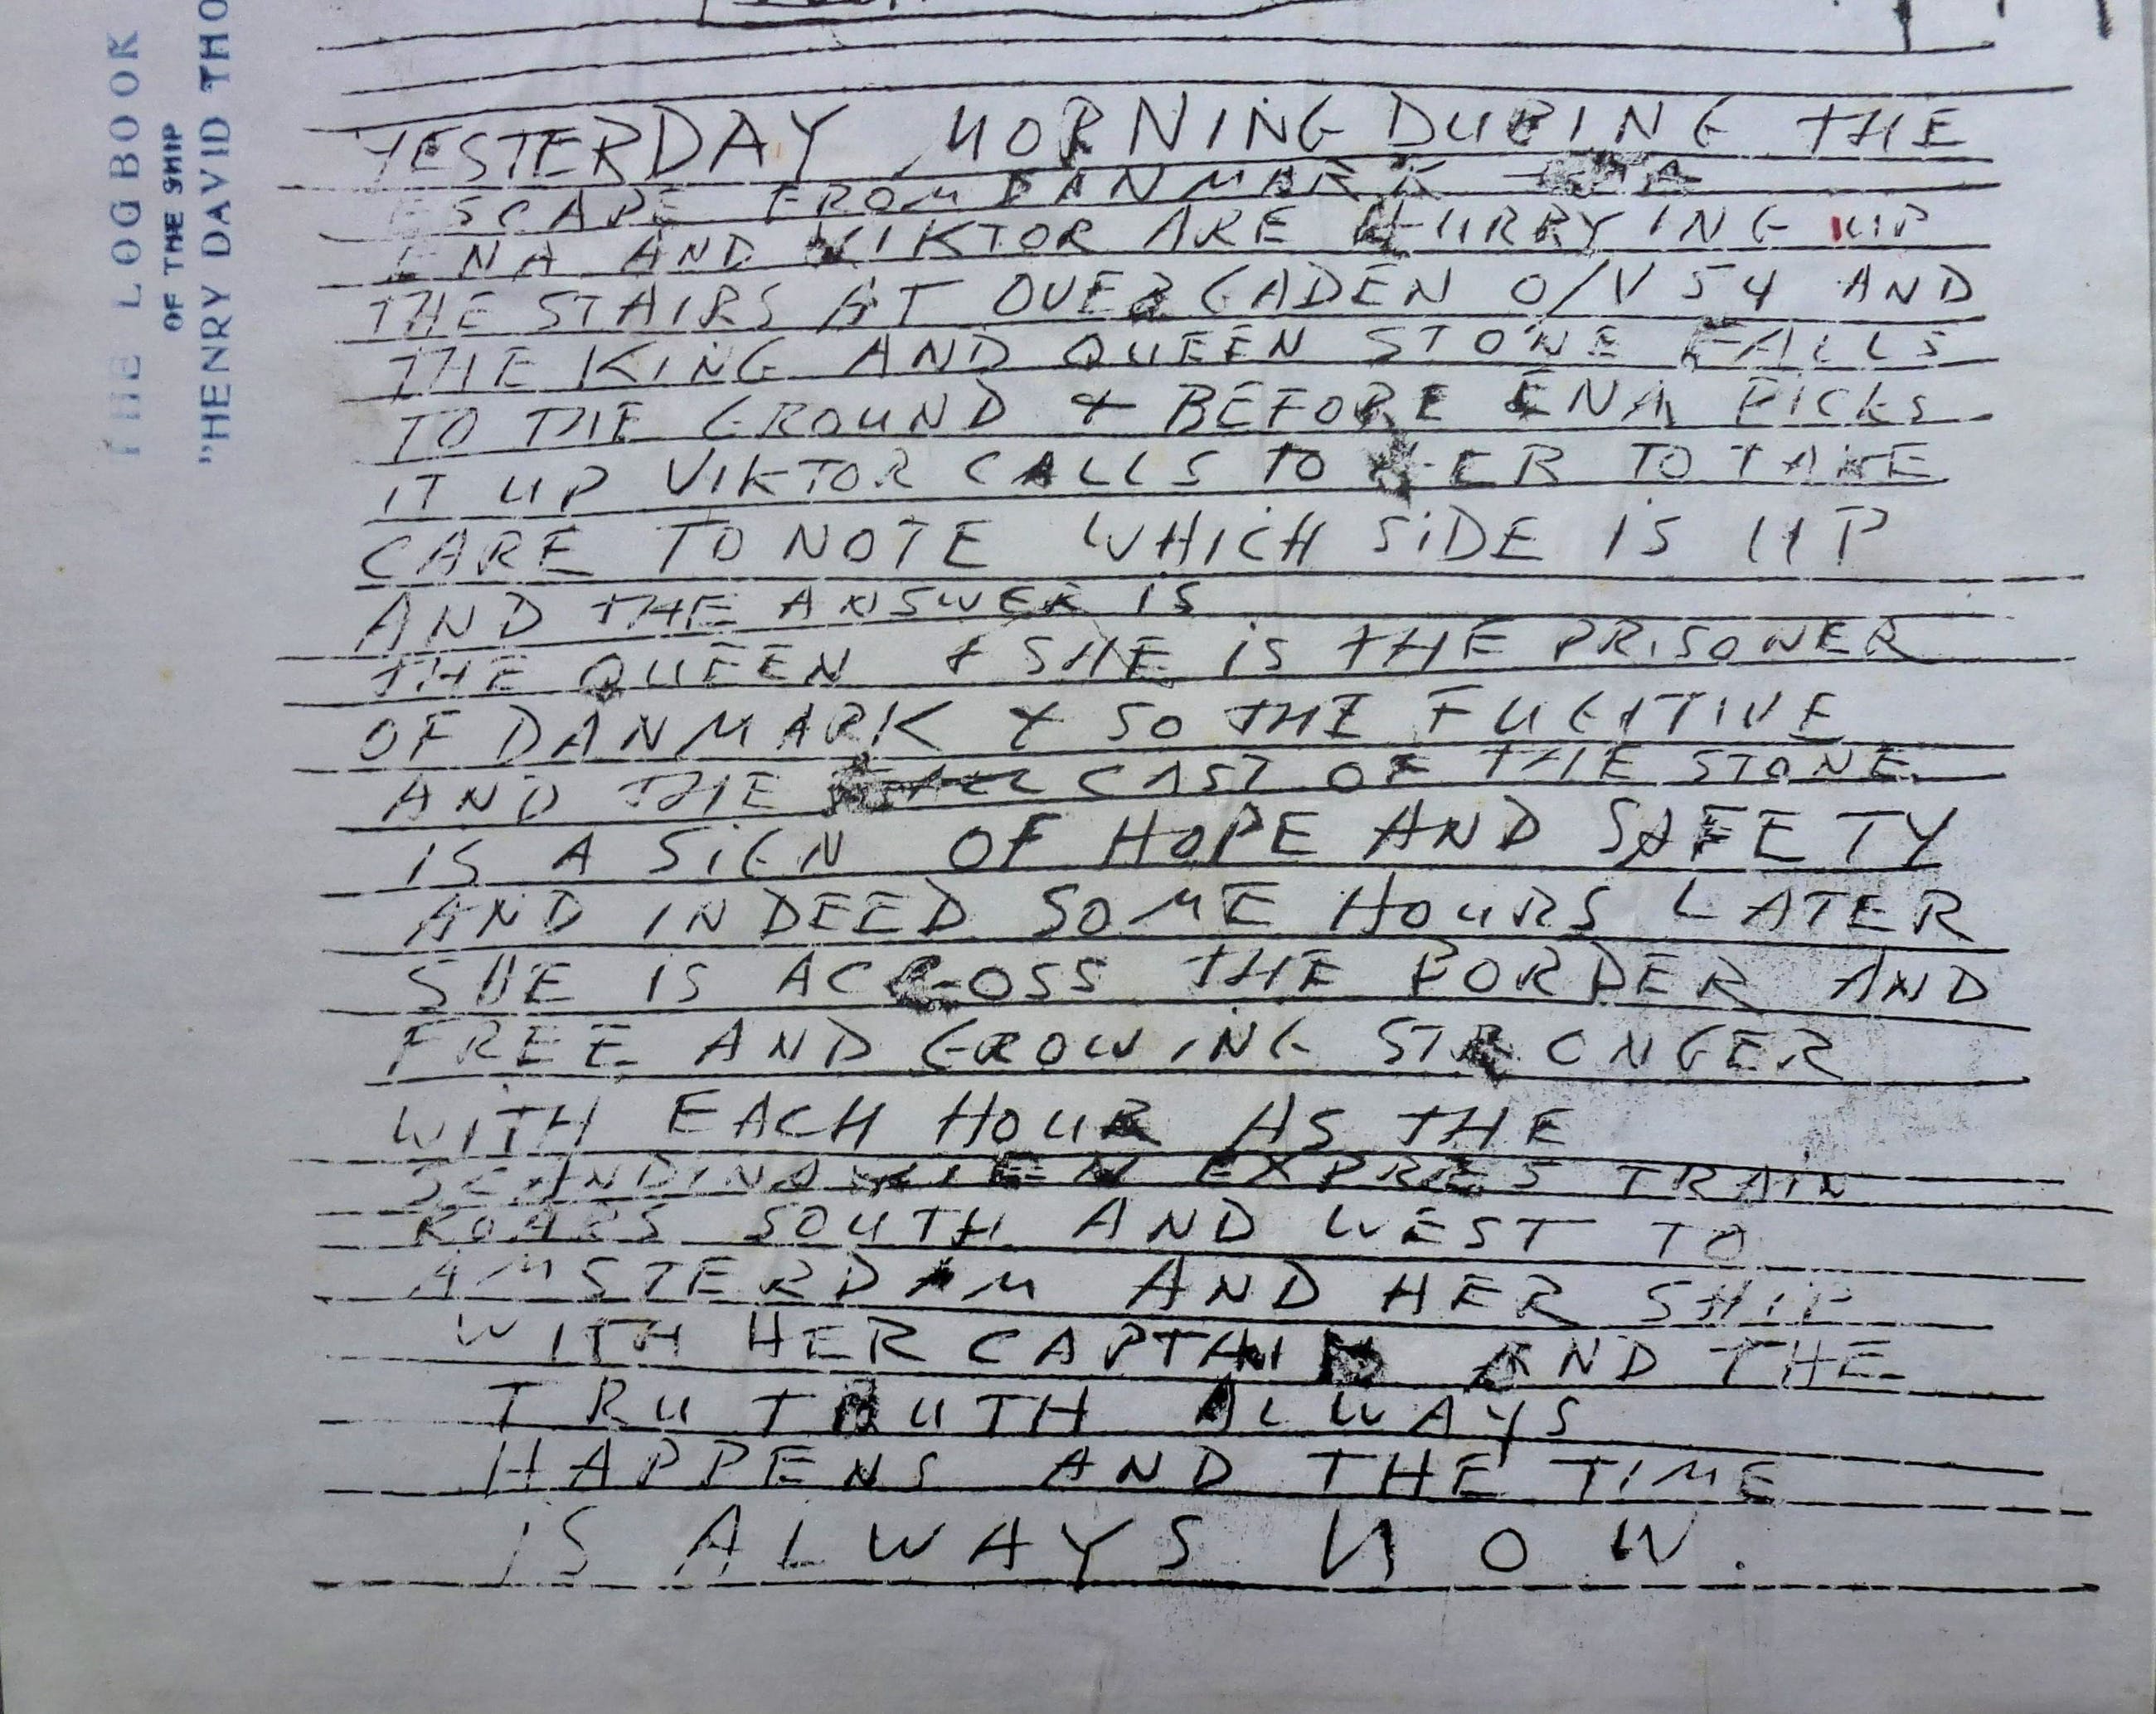 THE LOGBOOK
OF THE SHIP
"HENRY DAVID THO
YESTERDAY MORNING DURING THE
ESCAPE FROM DANMARK
ENA AND VIKTOR ARE HURRYING UP
THE STAIRS AT OVERGADEN O/V 54 AND
THE KING AND QUEEN STONE FALLS
TO THE GROUND & BEFORE ENA PICKS
IT UP VIKTOR CALLS TO HER TO TAKE
CARE TO NOTE WHICH SIDE IS UP
AND THE ANSWER IS
THE QUEEN & SHE IS THE PRISONER
OF DANMARK & SO THE FUGITIVE
AND THE CAST OF THE STONE
IS A SIGN OF HOPE AND SAFETY
AND INDEED SOME HOURS LATER
SHE IS ACROSS THE BORDER AND
FREE AND GROWING STRONGER
WITH EACH HOUR AS THE
SCANDINAVIEN EXPRES TRAIN
ROARS SOUTH AND WEST TO
AMSTERDAM AND HER SHIP
WITH HER CAPTAIN AND THE
TRUTRUTH ALWAYS
HAPPENS AND THE TIME
IS ALWAYS NOW.